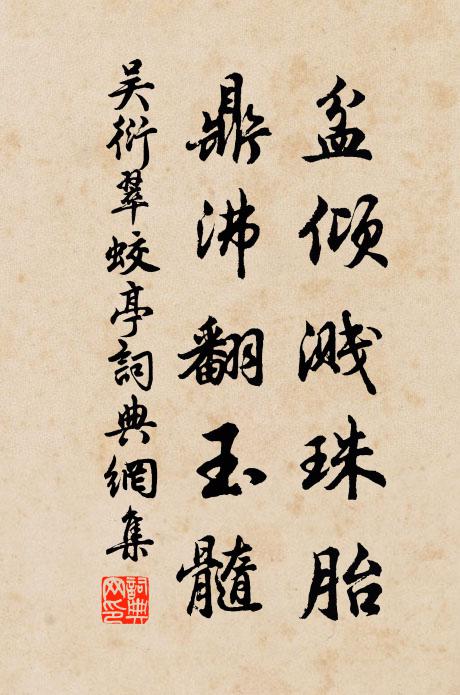 盆傾濺珠胎
鼎沸翻玉髓
吴衍翠蛟亭詞典網集
詞典網印